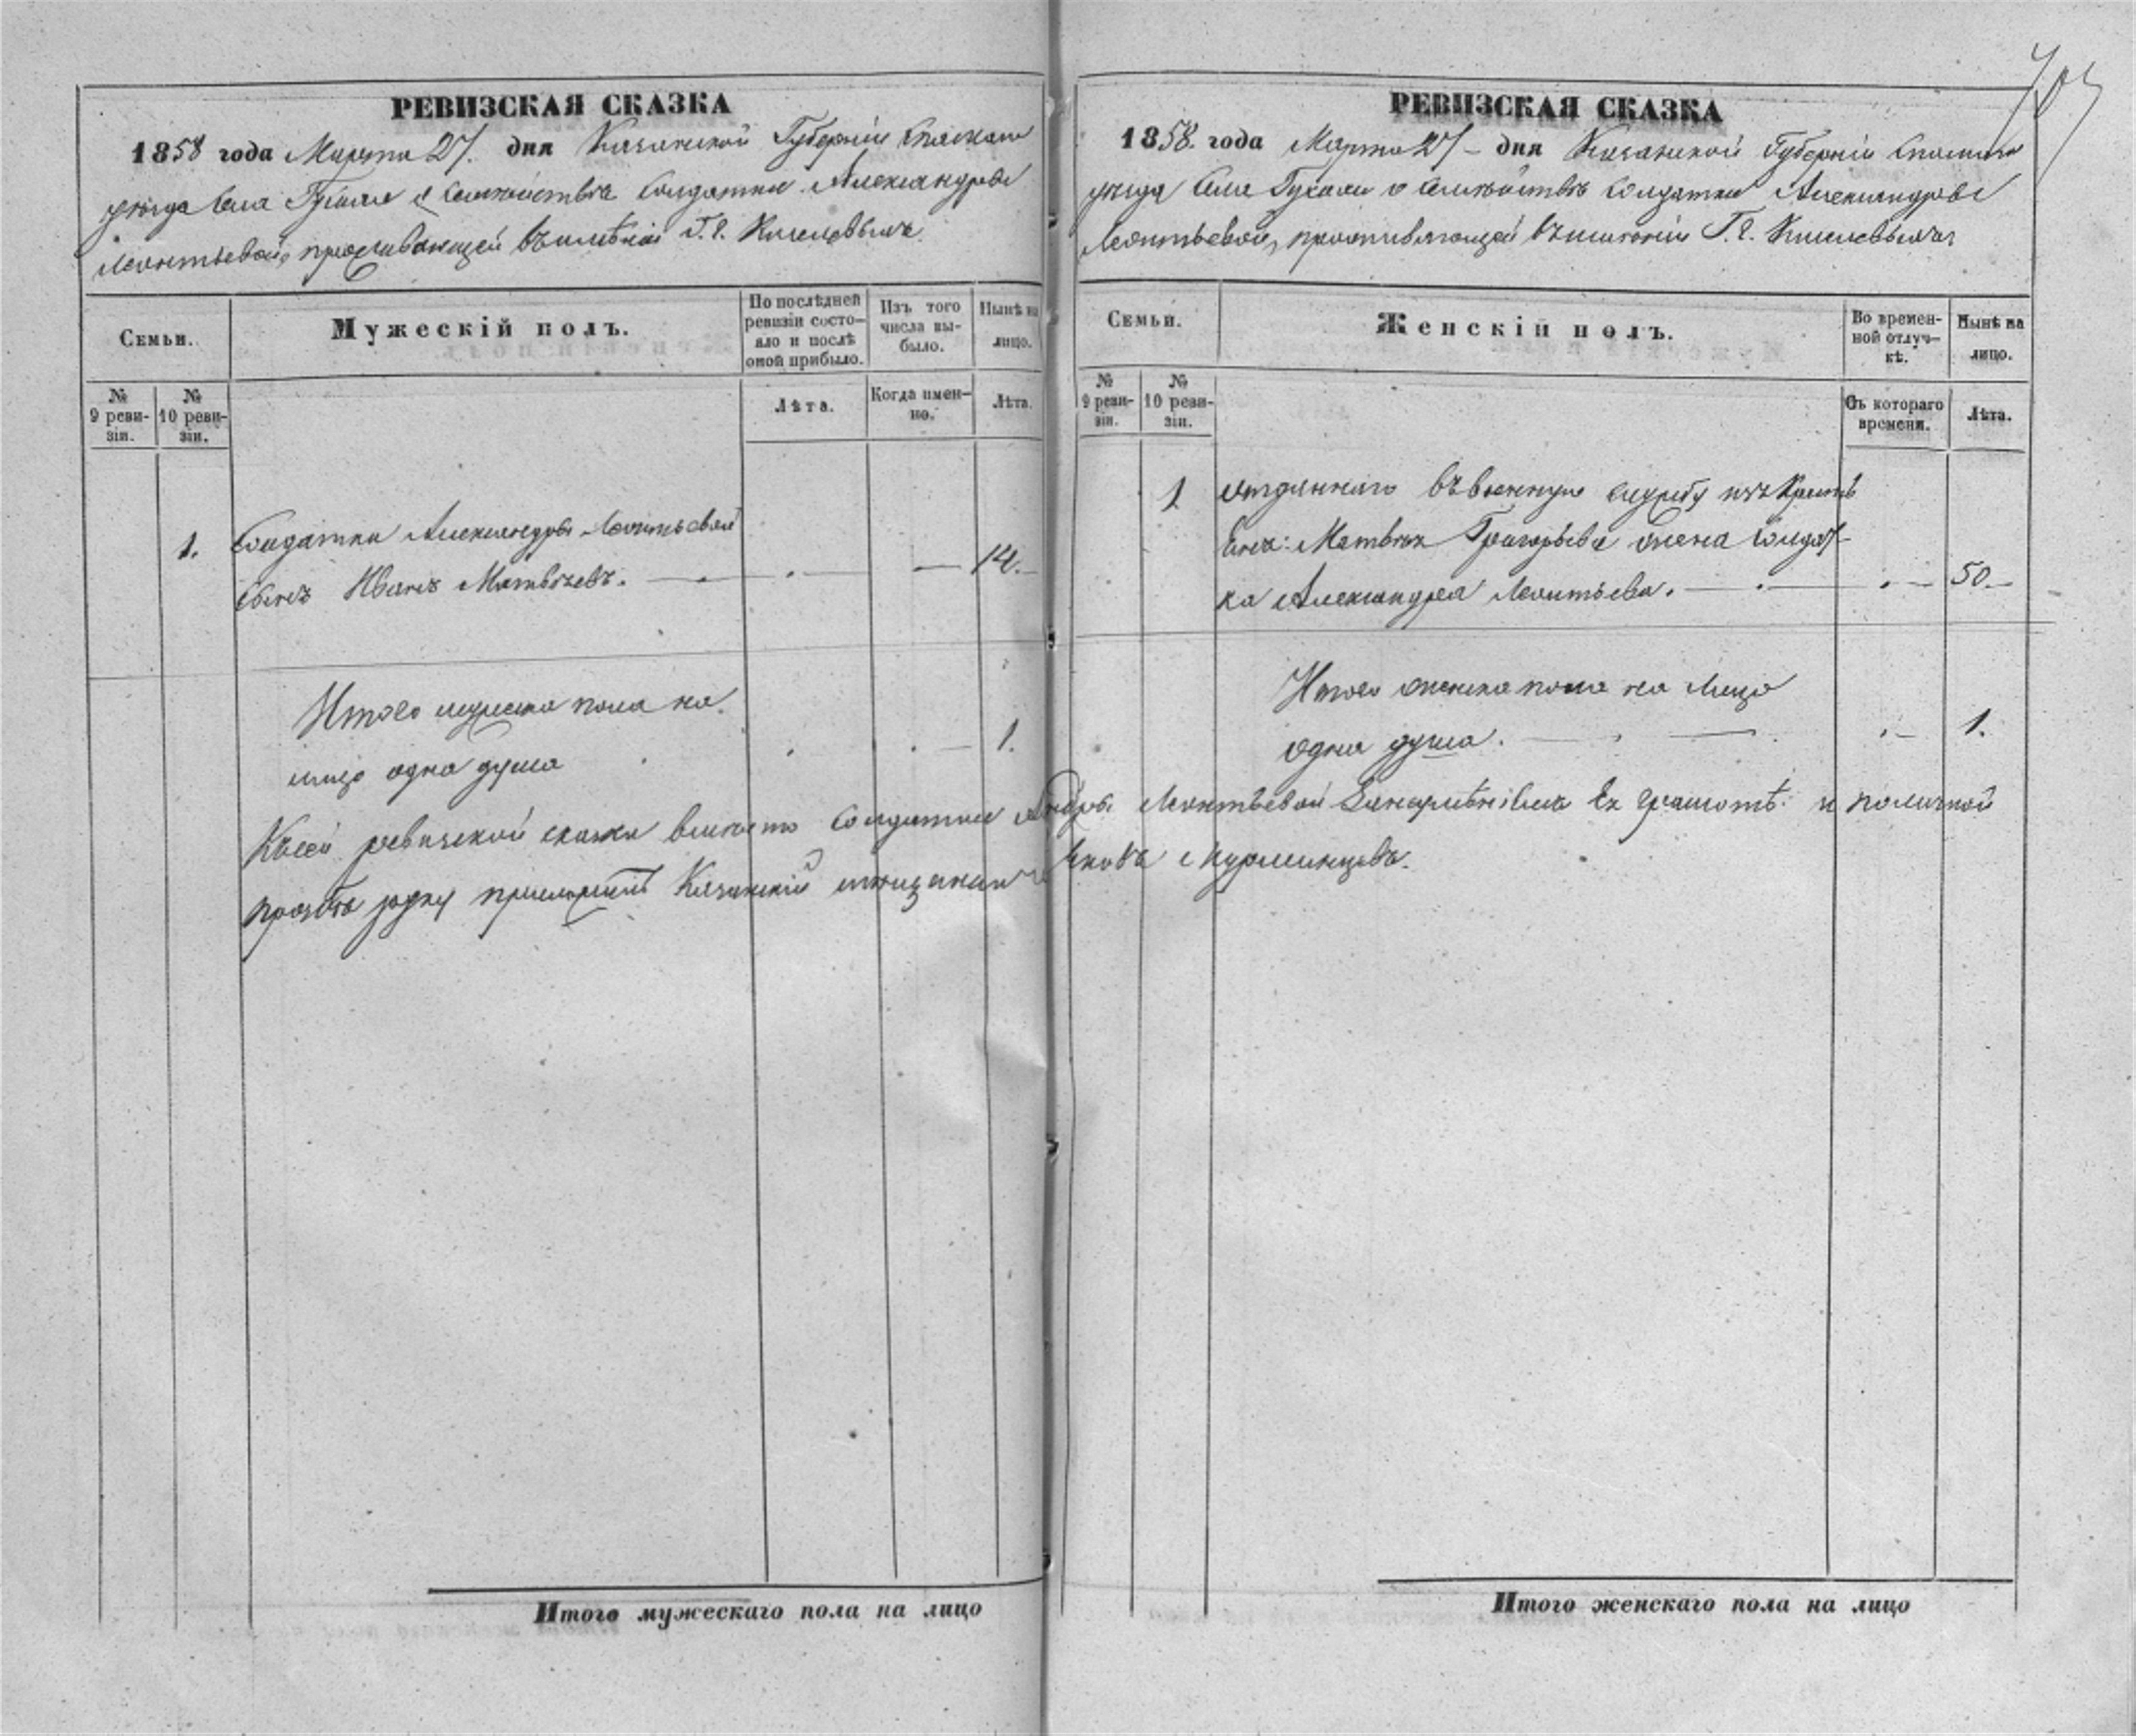 РЕВИЗСКАЯ СКАЗКА
1858 года Марта 27. дня Казанской Губерніи Спаскаго
уѣзда Села о семействѣ Солдатки Александры
Леонтьевой, проживающей въ имѣніи Г. г. Киселевыхъ.
Семьи.
Мужескій полъ.
По послѣдней ревизіи состояло и послѣ оной прибыло.
Изъ того числа выбыло.
Нынѣ на лицо.
№ 9 ревизіи.
№ 10 ревизіи.
Лѣта.
Когда именно.
Лѣта.
1. Солдатки Александры Леонтьевой
сынъ Иванъ Матвѣевъ. 14.
Итого мужеска пола на
лицо одна душа 1.
РЕВИЗСКАЯ СКАЗКА
1858. года Марта 27 дня Казанской Губерніи Спаскаго
уѣзда Села о семействѣ Солдатки Александры
Леонтьевой, проживающей въ имѣніи Г. г. Киселевыхъ
Семьи.
Женскій полъ.
Во временной отлучкѣ.
Нынѣ на лицо.
№ 9 ревизіи.
№ 10 ревизіи.
Съ котораго времени.
Лѣта.
1 Отданнаго въ военную службу изъ Кресть
янъ: Матвѣя Григорьева жена Солдат-
ка Александра Леонтьева. 50.
Итого женска пола на лицо
одна душа. 1.
Къ сей ревизской сказки вмѣсто Солдатки Леонтьевой за неумѣніемъ Ея грамотѣ и по личной
прозьбѣ руку приложилъ Казанскій мещанинъ Яковъ
Итого мужескаго пола на лицо
Итого женскаго пола на лицо